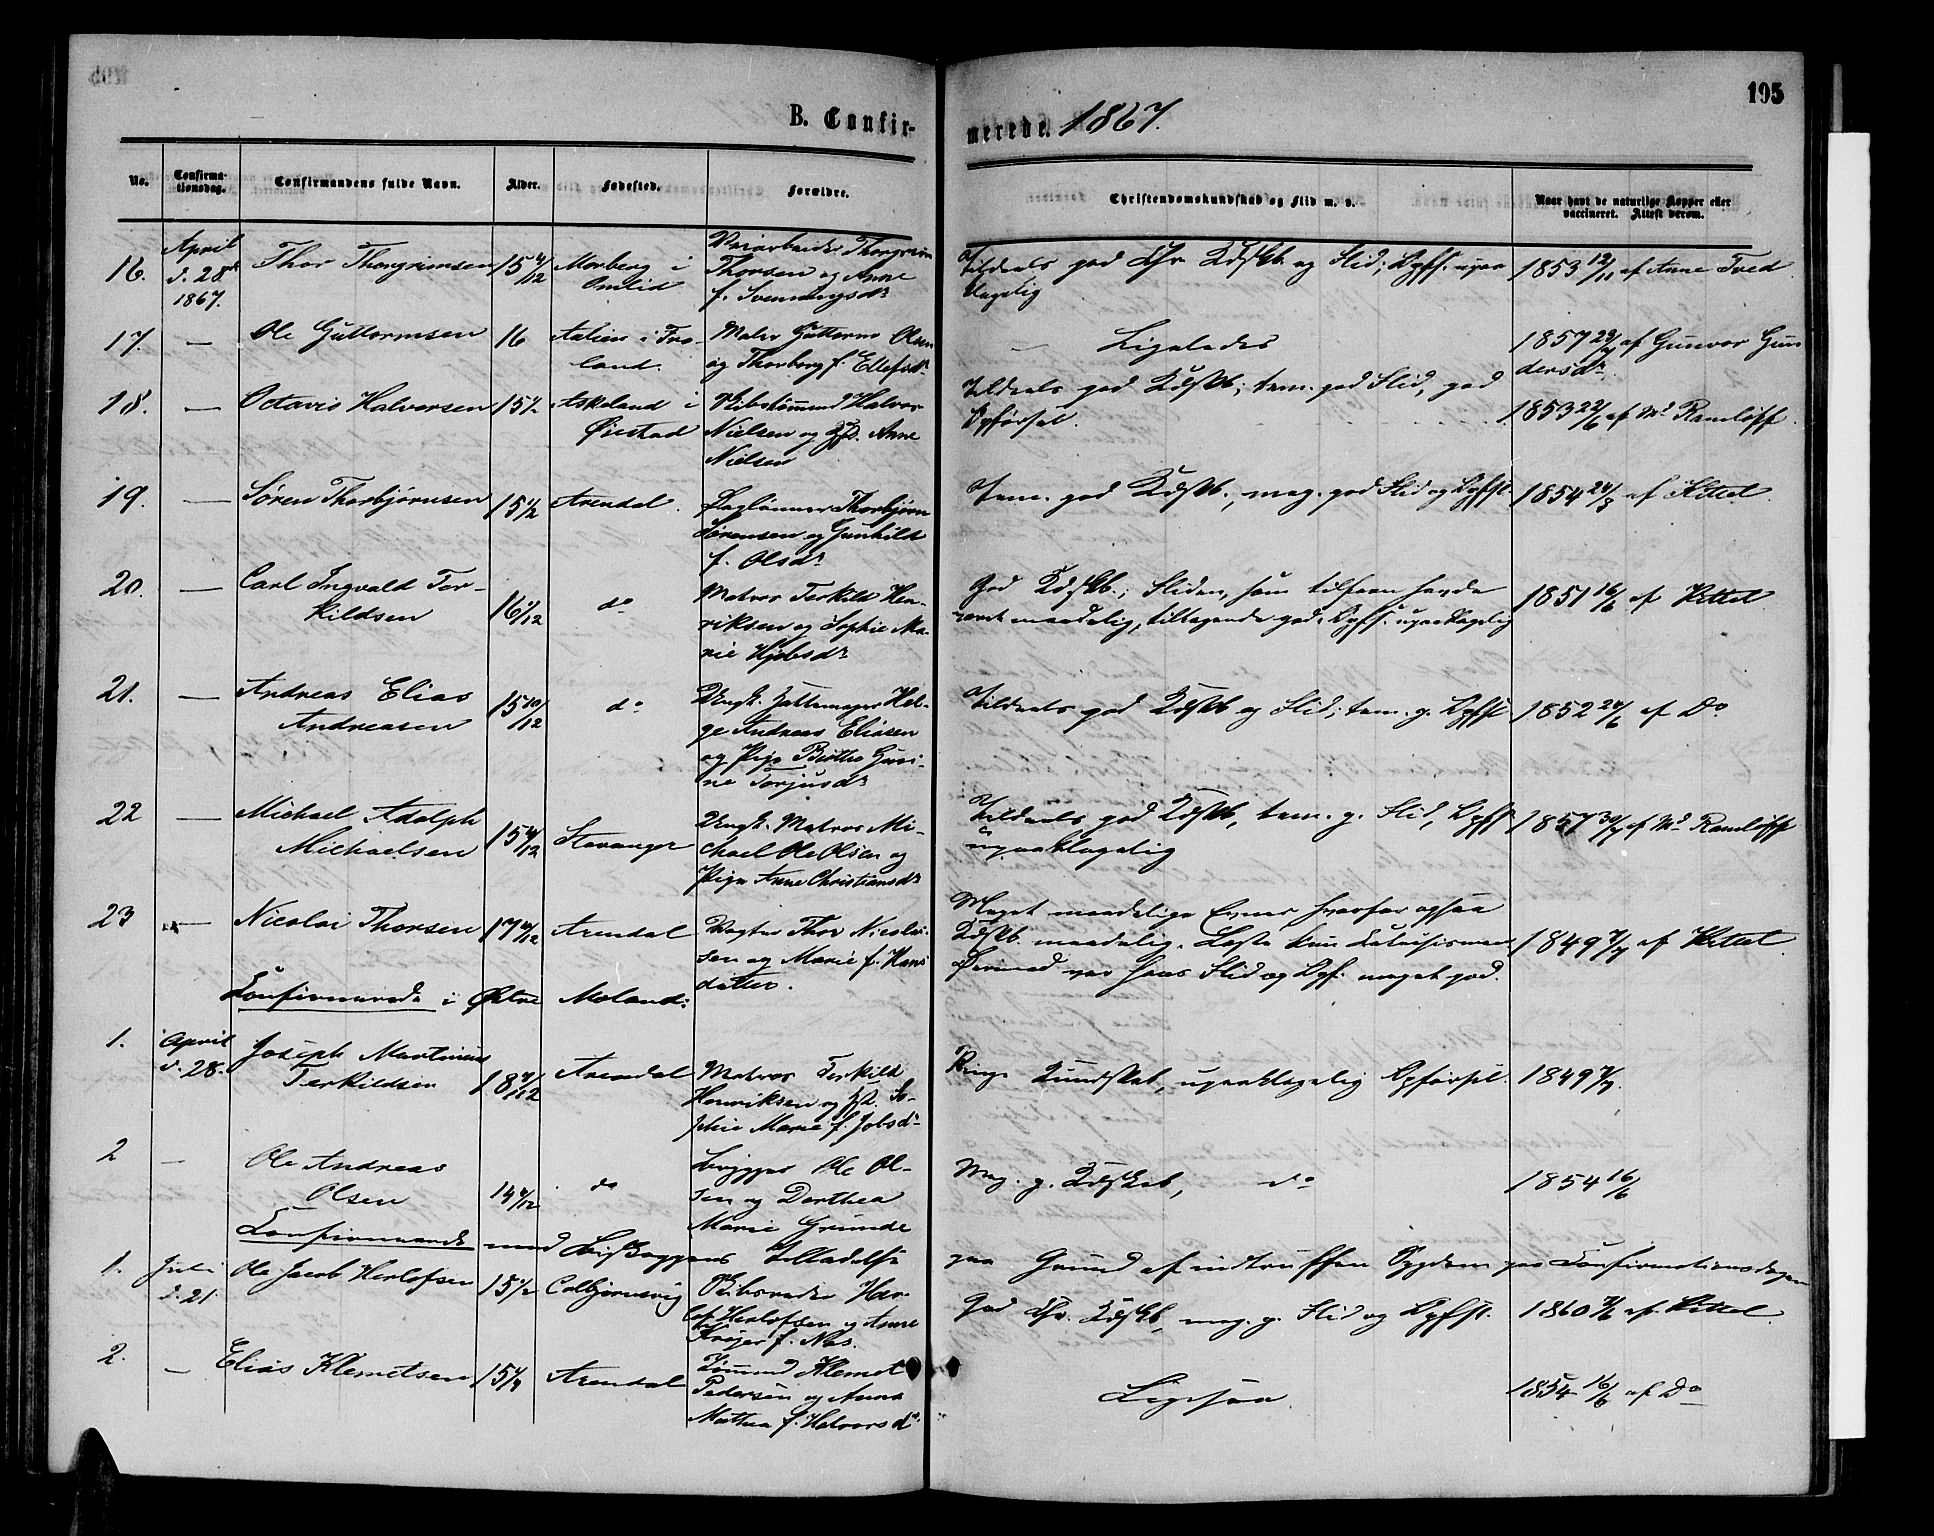 195
B. Confirmerede. 1867.
No. Confirmationsdag. Confirmandens fulde Navn. Alder. Fødested. Forældre. Christendomskundskab og Flid m. v. Naar havt de naturlige Kopper eller vaccineret. Attest derom.
16. April d. 28de 1867. Thor Thorgrimsen 15 Morberg i Omlid
Thorgrim
Thorsen og Anne
f. Svenningsdr
Tildeels god Chr. Kdskb. og Flid; Opf. upaa
klagelig
1853 12/11 af Anne Tved
17. — Ole Guttormsen 16 i Fro
land.
Guttorm Olsen
og Thorborg f. Ellefsdr
— Ligeledes
1857 af Gunvor Gun
dersdr
18. — Octavio Halvorsen 15½ Askeland i
Øiestad
Skibstømmd Halvor
Nielsen og Hst. Anne
Nielsen
Tildeels god Kdskb; tem. god Flid, god
Opførsel.
1853 22/6 af Md Ramløff.
19. — Søren Thorbjørnsen 15½ Arendal.
Daglønner Thorbjørn
Sørensen og Gunhild
f. Olsdr
Tem. god Kdskb., meg. god Flid og Opfsl.
1854 24/8 af Kittel.
20. — Carl Ingvald Ter-
kildsen 16 1/12 do
Matros Terkild Hen-
riksen og Sophie Ma-
rie Hjobsdr
God Kdskb.; Fliden, som tilforn havde
været maadelig, tiltagende god. Opf. upaaklagelig
1851 16/6 af Kittel
21. — Andreas Elias
Andreasen 15 10/12 do
Ungk. Hattemager Hel-
ge Andreas Eliasen
og Pige Berthe Guri-
ne Torjusdr
Tildeels god Kdskb og Flid; tem. g. Opfsl
1852 24/6 af Do
22 — Michael Adolph
Michaelsen 15 Stavanger
Ungk. Matros Mi-
chael Ole Olsen og
Pige Anne Christiansdr
Tildeels god Kdskb, tem. g. Flid, Opfsl
upaaklagelig
1857 30/7 af Md Ramløff
23 — Nicolai Thorsen 17 Arendal
Vægter Thor Nicolai-
sen og Marie f. Hans
datter.
Meget maadelige Evner hvorfor ogsaa
Kdskb. maadelig. Læste kun Katechismen
Derimod var hans Flid og Opf. meget god.
1849 7/7 af Kittel
Confirmerede i Østre Moland:
1. April d. 28. Joseph Martinius
Terkildsen 18 Arendal
Matros Terkild
Henriksen og Hst. So-
phie Marie f. Jobsd.
Ringe Kundskab, upaaklagelig Opførsel.
1849
2 — Ole Andreas
Olsen 14 do
Brygger Ole Ol-
sen og Dorthea
Marie Grunde
Meg. g. Kdskab, do
1854 16/6
Confirmerede med Biskoppens Tilladelse paa Grund af indtruffen Sygdom paa Confirmationsdagen
1. Juli d. 21. Ole Jacob Herlofsen 15½ Colbjørnsvig
Skibsreder Her-
lof Herlofsen og Anne
Krøger f. Næs.
God Chr. Kdskb, meg. g. Flid og Opfsl.
1860 af Kittel.
2. — Elias Klemetsen 15¼ Arendal
Tømmd Klemet
Pedersen og Anna
Mathea f. Halvorsdr
Ligesaa
1854 16/6 af Do